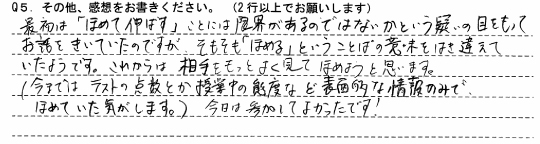 Q5. その他、感想をお書きください。（2行以上でお願いします）
最初は「ほめて伸ばす」ことには限界があるのではないかという疑いの目をもって
お話をきいていたのですが、そもそも「ほめる」ということばの意味をはき違えて
いたようです。これからは相手をもっとよく見てほめようと思います。
（今までは テストの点数とか 授業中の態度など表面的な情報のみで、
ほめていた気がします。） 今日は参加してよかったです！